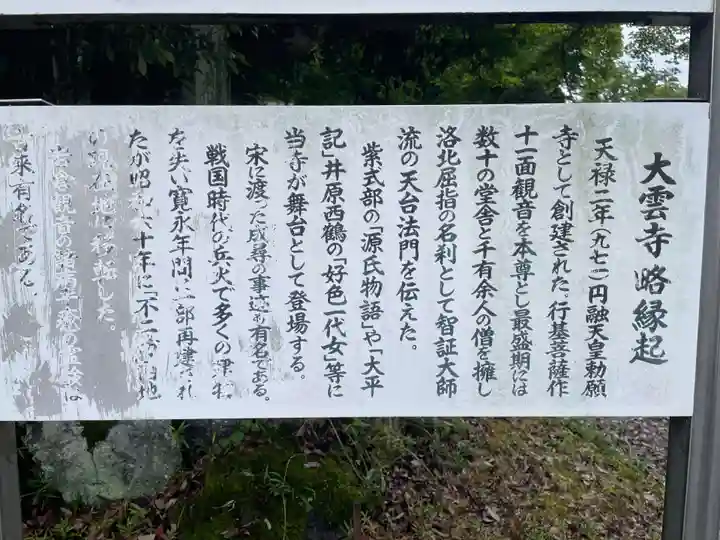 大雲寺 略縁起
天禄二年(九七一)円融天皇勅願
寺として創建された。行基菩薩作
十一面観音を本尊とし最盛期には
数十の堂舎と千有余人の僧を擁し
洛北屈指の名刹として智証大師
流の天台法門を伝えた。
紫式部の「源氏物語」や「太平
記」井原西鶴の「好色一代女」等に
当寺が舞台として登場する。
宋に渡った成尋の事迹も有名である。
戦国時代の兵火で多くの
を失い寛永年間に一部再建され
たが昭和六十年に不二 地
移転した。
観音の は
来有名である。